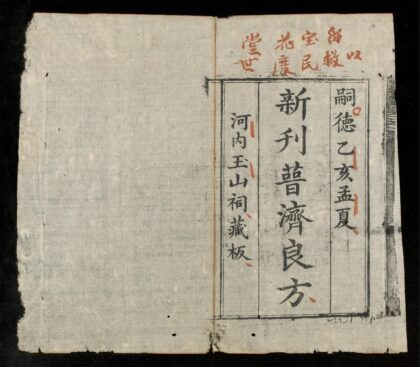 留宝花堂
以救民度世
嗣德乙亥孟夏
新刊普濟良方
河内玉山祠藏板